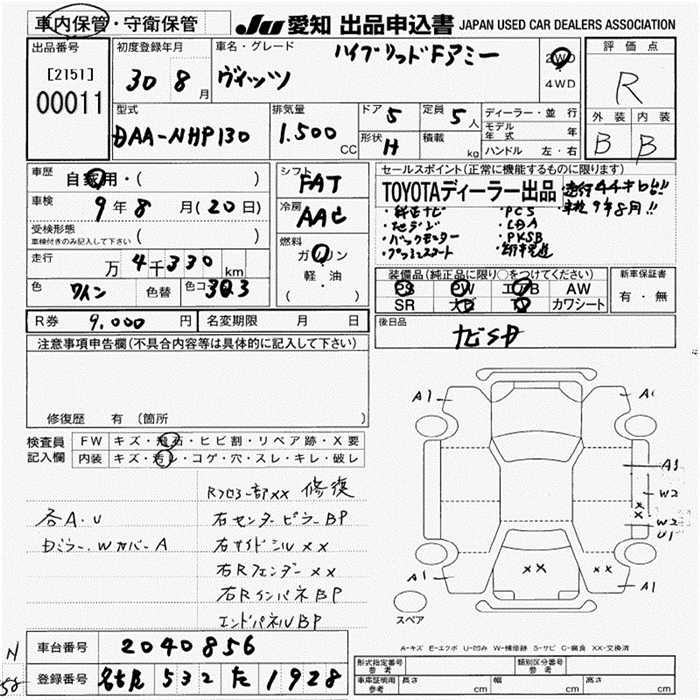 車内保管・守衛保管
JU 愛知 出品申込書 JAPAN USED CAR DEALERS ASSOCIATION
出品番号
[2151]
00011
初度登録年月
30 8月
車名・グレード
ハイブリッドFアミー
ヴィッツ
2WD
4WD
評価点
R
外装 内装
B B
型式
DAA-NHP130
排気量
1.500 CC
ドア 5
定員 5人
形状 H
積載 kg
ディーラー・並行
モデル年式 年
ハンドル 左・右
車歴
自家用・( )
車検
9年8月(20日)
受検形態
車検付きのみ記入して下さい ( )
走行
万4千330km
色 ワイン 色替 色コード 3Q3
シフト
FAT
冷房
AAC
燃料
ガソリン
軽・油
( )
セールスポイント(正常に機能するものに限ります)
TOYOTAディーラー出品
・走行44キロ!!
・車検9年8月!!
・純正ナビ ・PCS
・地デジ ・LDA
・バックモニター ・PKSB
・プッシュスタート
装備品(純正品に限り○をつけてください)
PS PW エアB AW
SR ナビ TV カワシート
新車保証書
有・無
R券 9.000 円
名変期限 月 日
後日品
ナビSD
注意事項申告欄(不具合内容等は具体的に記入して下さい)
修復歴 有 (箇所 )
検査員記入欄
FW キズ・飛石・ヒビ割・リペア跡・X要
内装 キズ・汚レ・コゲ・穴・スレ・キレ・破レ
Rフロアー部XX 修復
各A.U
右センターピラーBP
右サイドシルXX
右RフェンダーXX
右RインパネBP
エンドパネルBP
A1
A1
A1
W2
XX
W2
U1
XX
XX
A1
A1
スペア
A-キズ E-エクボ U-凹み W-補修跡 S-サビ C-腐食 XX-交換済
N
58
車台番号 2040856
登録番号 名古屋 532 た 1928
形式指定番号 参考
類別区分番号 参考
車庫証明用 参考 長さ cm 幅 cm 高さ cm